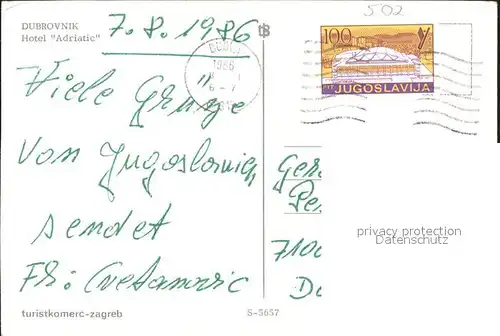 502
DUBROVNIK
Hotel "Adriatic"
7.8.1986
1986
100
JUGOSLAVIJA
Viele Grüße
von Jugoslawien
sendet
Fr: Cvetanovic
Ger
Pe
7100
privacy protection
Datenschutz
turistkomerc-zagreb
S-5657